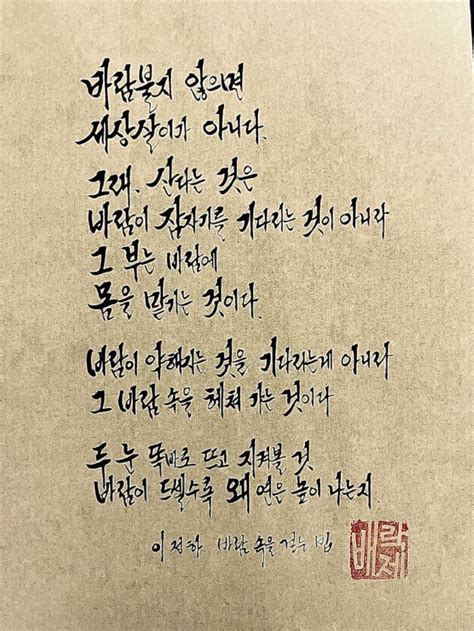 바람불지 않으면
세상살이가 아니다.
그래. 산다는 것은
바람이 잠자기를 기다리는 것이 아니라
그 부는 바람에
몸을 맡기는 것이다.
바람이 약해지는 것을 기다리는게 아니라
그 바람 속을 헤쳐 가는 것이다
두 눈 똑바로 뜨고 지켜볼 것
바람이 드셀수록 왜 연은 높이 나는지.
이정하 바람 속을 걷는 법